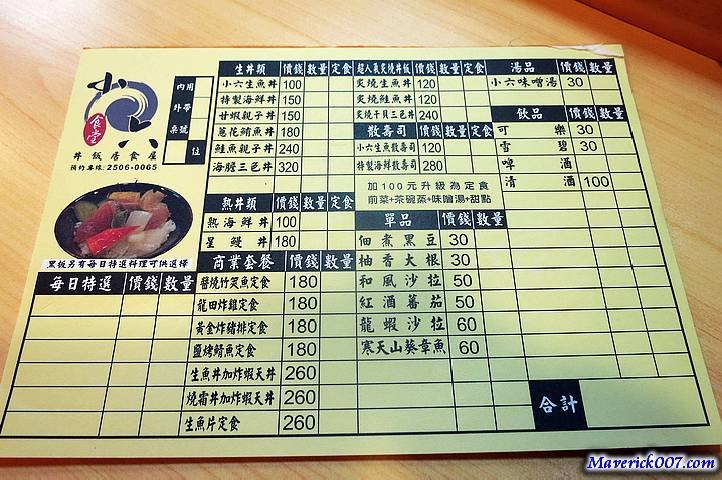 小六
食堂
丼飯居食屋
預約專線:2506-0065
內用
外帶
桌號
位
黑板另有每日特選料理可供選擇
每日特選 價錢 數量
生丼類 價錢 數量 定食
小六生魚丼 100
特製海鮮丼 150
甘蝦親子丼 140
蔥花鮪魚丼 180
鮭魚親子丼 240
海膽三色丼 320
熟丼類 價錢 數量 定食
熟海鮮丼 100
星鰻丼 180
商業套餐 價錢 數量
醬燒竹筴魚定食 180
龍田炸雞定食 180
黃金炸豬排定食 180
鹽烤鯖魚定食 180
生魚丼加炸蝦天丼 260
燒霜丼加炸蝦天丼 260
生魚片定食 260
超人氣炙燒丼飯 價錢 數量 定食
炙燒生魚丼 120
炙燒鮭魚丼 120
炙燒干貝三色丼 240
散壽司 價錢 數量 定食
小六生魚散壽司 120
特製海鮮散壽司 280
加100元升級為定食
前菜+茶碗蒸+味噌湯+甜點
單品 價錢 數量
佃煮黑豆 30
柚香大根 30
和風沙拉 50
紅酒蕃茄 50
龍蝦沙拉 60
寒天山葵章魚 60
湯品 價錢 數量
小六味噌湯 30
飲品 價錢 數量
可樂 30
雪碧 30
啤酒
清酒 100
合計
Maverick007.com